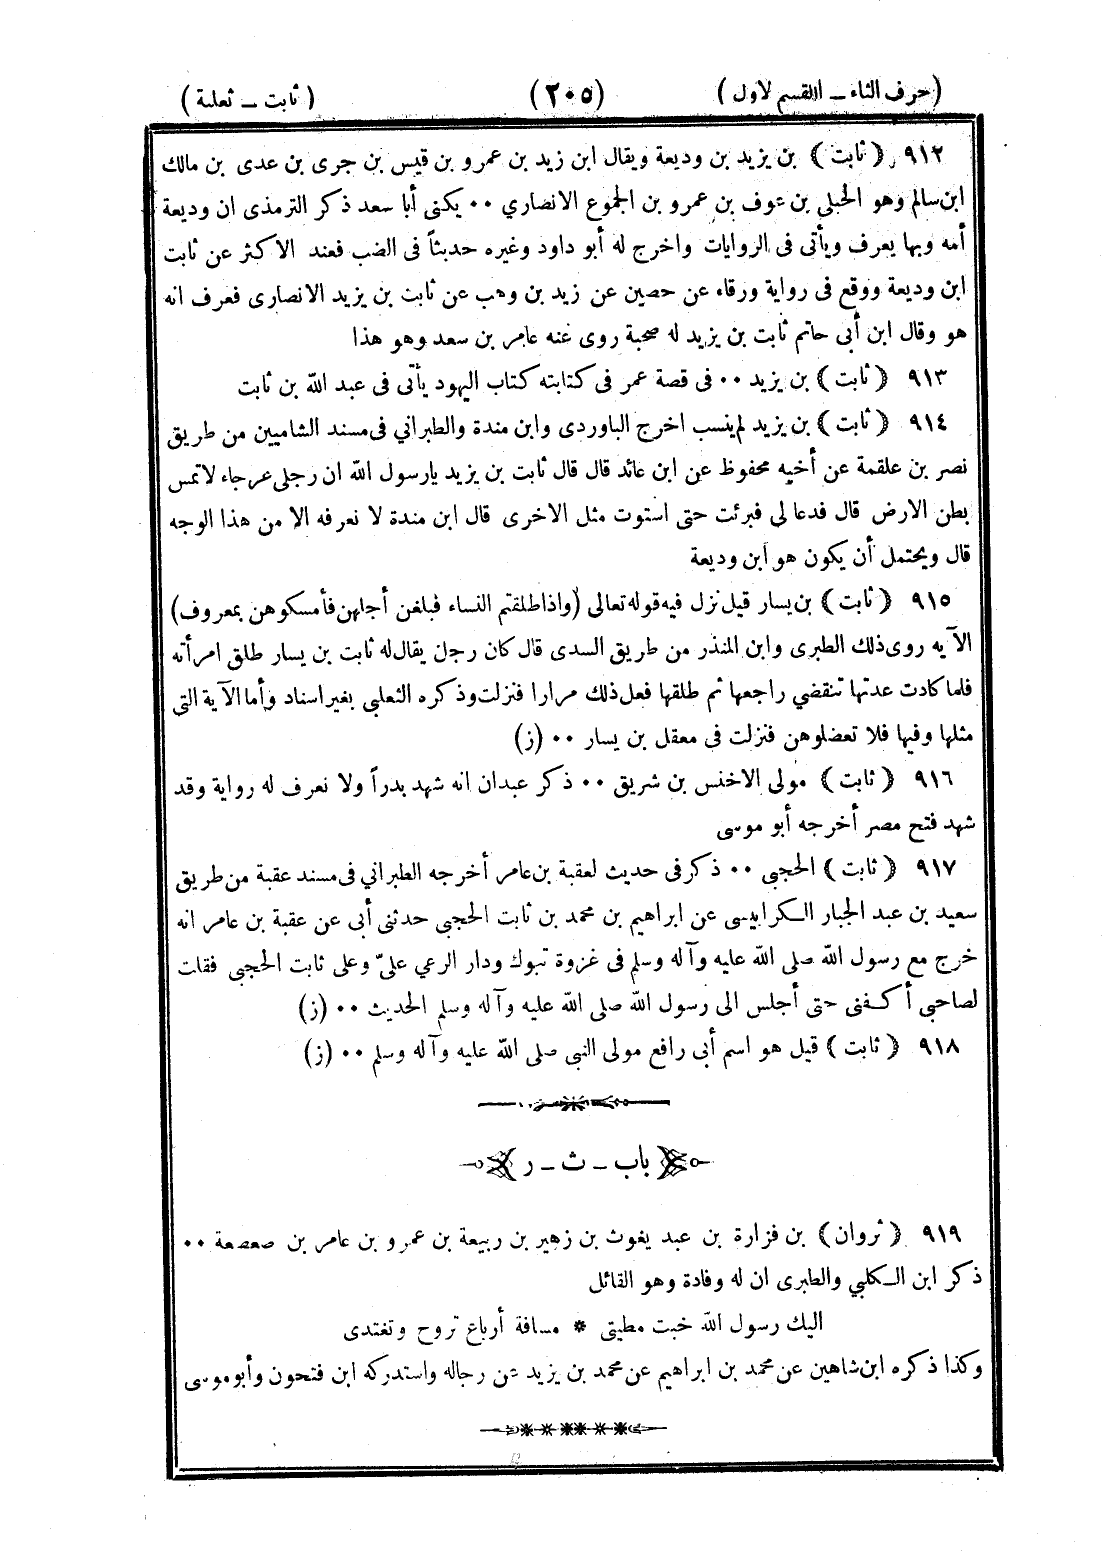 (حرف الثاء ــ القسم لاول) (٢٠٥) (ثابت ــ ثعلبة)
٩١٢ (ثابت) بن يزيد بن وديعة ويقال ابن زيد بن عمرو بن قيس بن جرى بن عدى بن مالك
ابن سالم وهو الحبلي بن عوف بن عمرو بن الجموع الانصاري ٠٠ يكنى أبا سعد ذكر الترمذى ان وديعة
أمه وبها يعرف ويأتى فى الروايات واخرج له أبو داود وغيره حديثاً فى الضب فعند الاكثر عن ثابت
ابن وديعة ووقع فى رواية ورقاء عن حصين عن زيد بن وهب عن ثابت بن يزيد الانصارى فعرف انه
هو وقال ابن أبى حاتم ثابت بن يزيد له صحبة روى عنه عامر بن سعد وهو هذا
٩١٣ (ثابت) بن يزيد ٠٠ فى قصة عمر فى كتابته كتاب اليهود يأتى فى عبد الله بن ثابت
٩١٤ (ثابت) بن يزيد لم ينسب اخرج الباوردى وابن مندة والطبراني فى مسند الشاميين من طريق
نصر بن علقمة عن أخيه محفوظ عن ابن عائد قال قال ثابت بن يزيد يارسول الله ان رجلى عرجاء لاتمس
بطن الارض قال فدعا لي فبرئت حتى استوت مثل الاخرى قال ابن مندة لا نعرفه الا من هذا الوجه
قال ويحتمل أن يكون هو ابن وديعة
٩١٥ (ثابت) بن يسار قيل نزل فيه قوله تعالى (واذا طلقتم النساء فبلغن أجلهن فأمسكوهن بمعروف)
الآيه روى ذلك الطبرى وابن المنذر من طريق السدى قال كان رجل يقال له ثابت بن يسار طلق امرأته
فلما كادت عدتها تنقضي راجعها ثم طلقها فعل ذلك مرارا فنزلت وذكره الثعلبي بغير اسناد وأما الآية التى
مثلها وفيها فلا تعضلوهن فنزلت فى معقل بن يسار ٠٠ (ز)
٩١٦ (ثابت) مولى الاخنس بن شريق ٠٠ ذكر عبدان انه شهد بدراً ولا نعرف له رواية وقد
شهد فتح مصر أخرجه أبو موسى
٩١٧ (ثابت) الحجبى ٠٠ ذكر فى حديث لعقبة بن عامر أخرجه الطبراني فى مسند عقبة من طريق
سعيد بن عبد الجبار الكرابيسى عن ابراهيم بن محمد بن ثابت الحجبى حدثنى أبى عن عقبة بن عامر انه
خرج مع رسول الله صلى الله عليه وآله وسلم فى غزوة تبوك ودار الرعي علىّ وعلى ثابت الحجبى فقلت
لصاحبى أكفنى حتى أجلس الى رسول الله صلى الله عليه وآله وسلم الحديث ٠٠ (ز)
٩١٨ (ثابت) قيل هو اسم أبى رافع مولى النبى صلى الله عليه وآله وسلم ٠٠ (ز)
باب ــ ث ــ ر
٩١٩ (ثروان) بن فزارة بن عبد يغوث بن زهير بن ربيعة بن عمرو بن عامر بن صعصعة ٠٠
ذكر ابن الكلبي والطبرى ان له وفادة وهو القائل
اليك رسول الله خبت مطيتى * مسافة أرباع تروح وتغتدى
وكذا ذكره ابن شاهين عن محمد بن ابراهيم عن محمد بن يزيد عن رجاله واستدركه ابن فتحون وأبو موسى